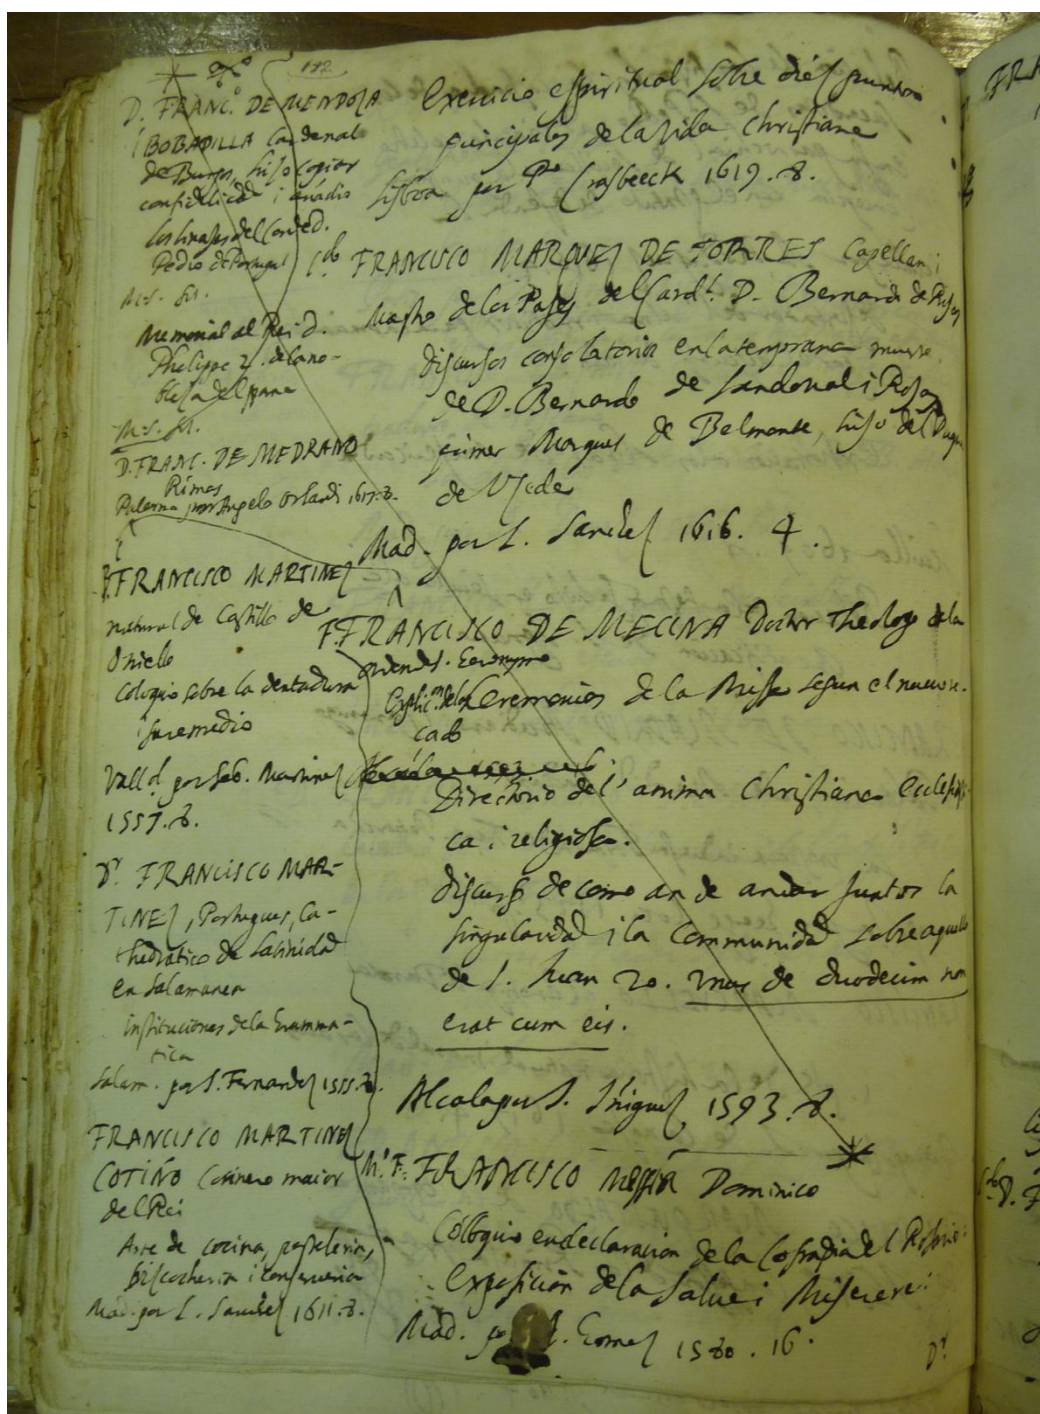 192
D. FRANC.º DE MENDOZA
i BOBADILLA Cardenal
de Burgos, hiso copiar
con fidelidad i añadio
los linajes del Conde D.
Pedro de Portugal
M.S. fol.
Memorial al Rei D.
Phelippe 2. de la no-
bleza de España
M.S. fol.
D. FRANC. DE MEDRANO
Rimas
Palermo por Angelo Orlandi 1617. 8.
FRANCISCO MARTINEZ
natural de Castillo de
Oniello
Coloquio sobre la dentadura
i su remedio
Vall.d por Seb. Martinez
1557. 8.
Dr. FRANCISCO MAR-
TINEZ, Portugues, Ca-
thedratico de Latinidad
en Salamanca
instituciones de la Gramma-
tica
Salam. por J. Fernandez 15. 8.
FRANCISCO MARTINEZ
COTIÑO Cocinero maior
del Rei
Arte de cocina, pasteleria,
biscocheria i conserveria
Mad. por L. Sanchez 1611. 8.
Exercicio espiritual sobre diez puntos
principales de la vida Christiana
Lisboa por Pº Crasbeeck 1619. 8.
Ldo FRANCISCO MARQUEZ DE TORRES Capellan i
Maestro de los Pajes del Card.l D. Bernardo de Rojas
discursos consolatorios en la temprana muerte
de D. Bernardo de Sandoval i Rojas
primer Marques de Belmonte, hijo del Duque
de Uzeda
Mad. por L. Sanchez 1616. 4.
F. FRANCISCO DE MECINA Doctor Theologo de la
orden de S. Geronymo
Explic.on de las Ceremonias de la Missa segun el nuevo re-
cado
Directorio del' anima Christiana ecclesiasti-
ca i religiosa.
discurso de como an de andar juntos la
singularidad i la communidad sobre aquello
de S. Juan 20. Unus de duodecim non
erat cum eis.
Alcala por J. Iñiguez 1593. 8.
M.º F. FRANCISCO MESSIA Dominico
Colloquio en declaracion de la Cofradia del Rosario i
exposicion de la Salve i Miserere.
Mad. por Gomez 1580. 16.
Dr.